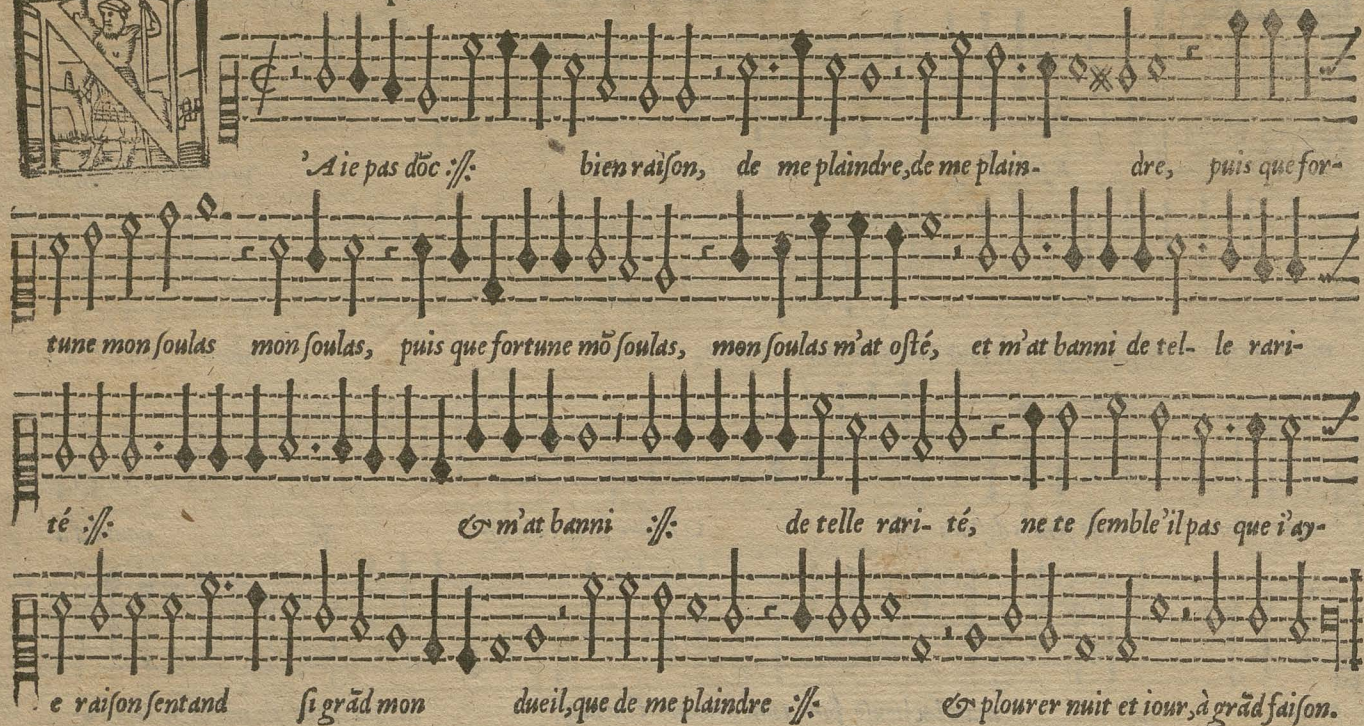 N'Aie pas dõc :||: bien raiſon, de me plaindre,de me plain- dre, puis que for-
tune mon ſoulas mon ſoulas, puis que fortune mõ ſoulas, mon ſoulas m'at oſté, et m'at banni de tel- le rari-
té :||: & m'at banni :||: de telle rari- té, ne te ſemble'il pas que i'ay-
e raiſon ſentand ſi grãd mon dueil,que de me plaindre :||: & plourer nuit et iour,à grãd faiſon.